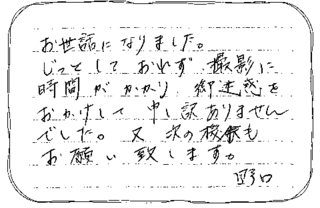 お世話になりました。
じっとして おれず 撮影に
時間が かかり 御迷惑を
おかけして 申し訳ありません
でした。 又 次の機会も
お願い致します。
野口